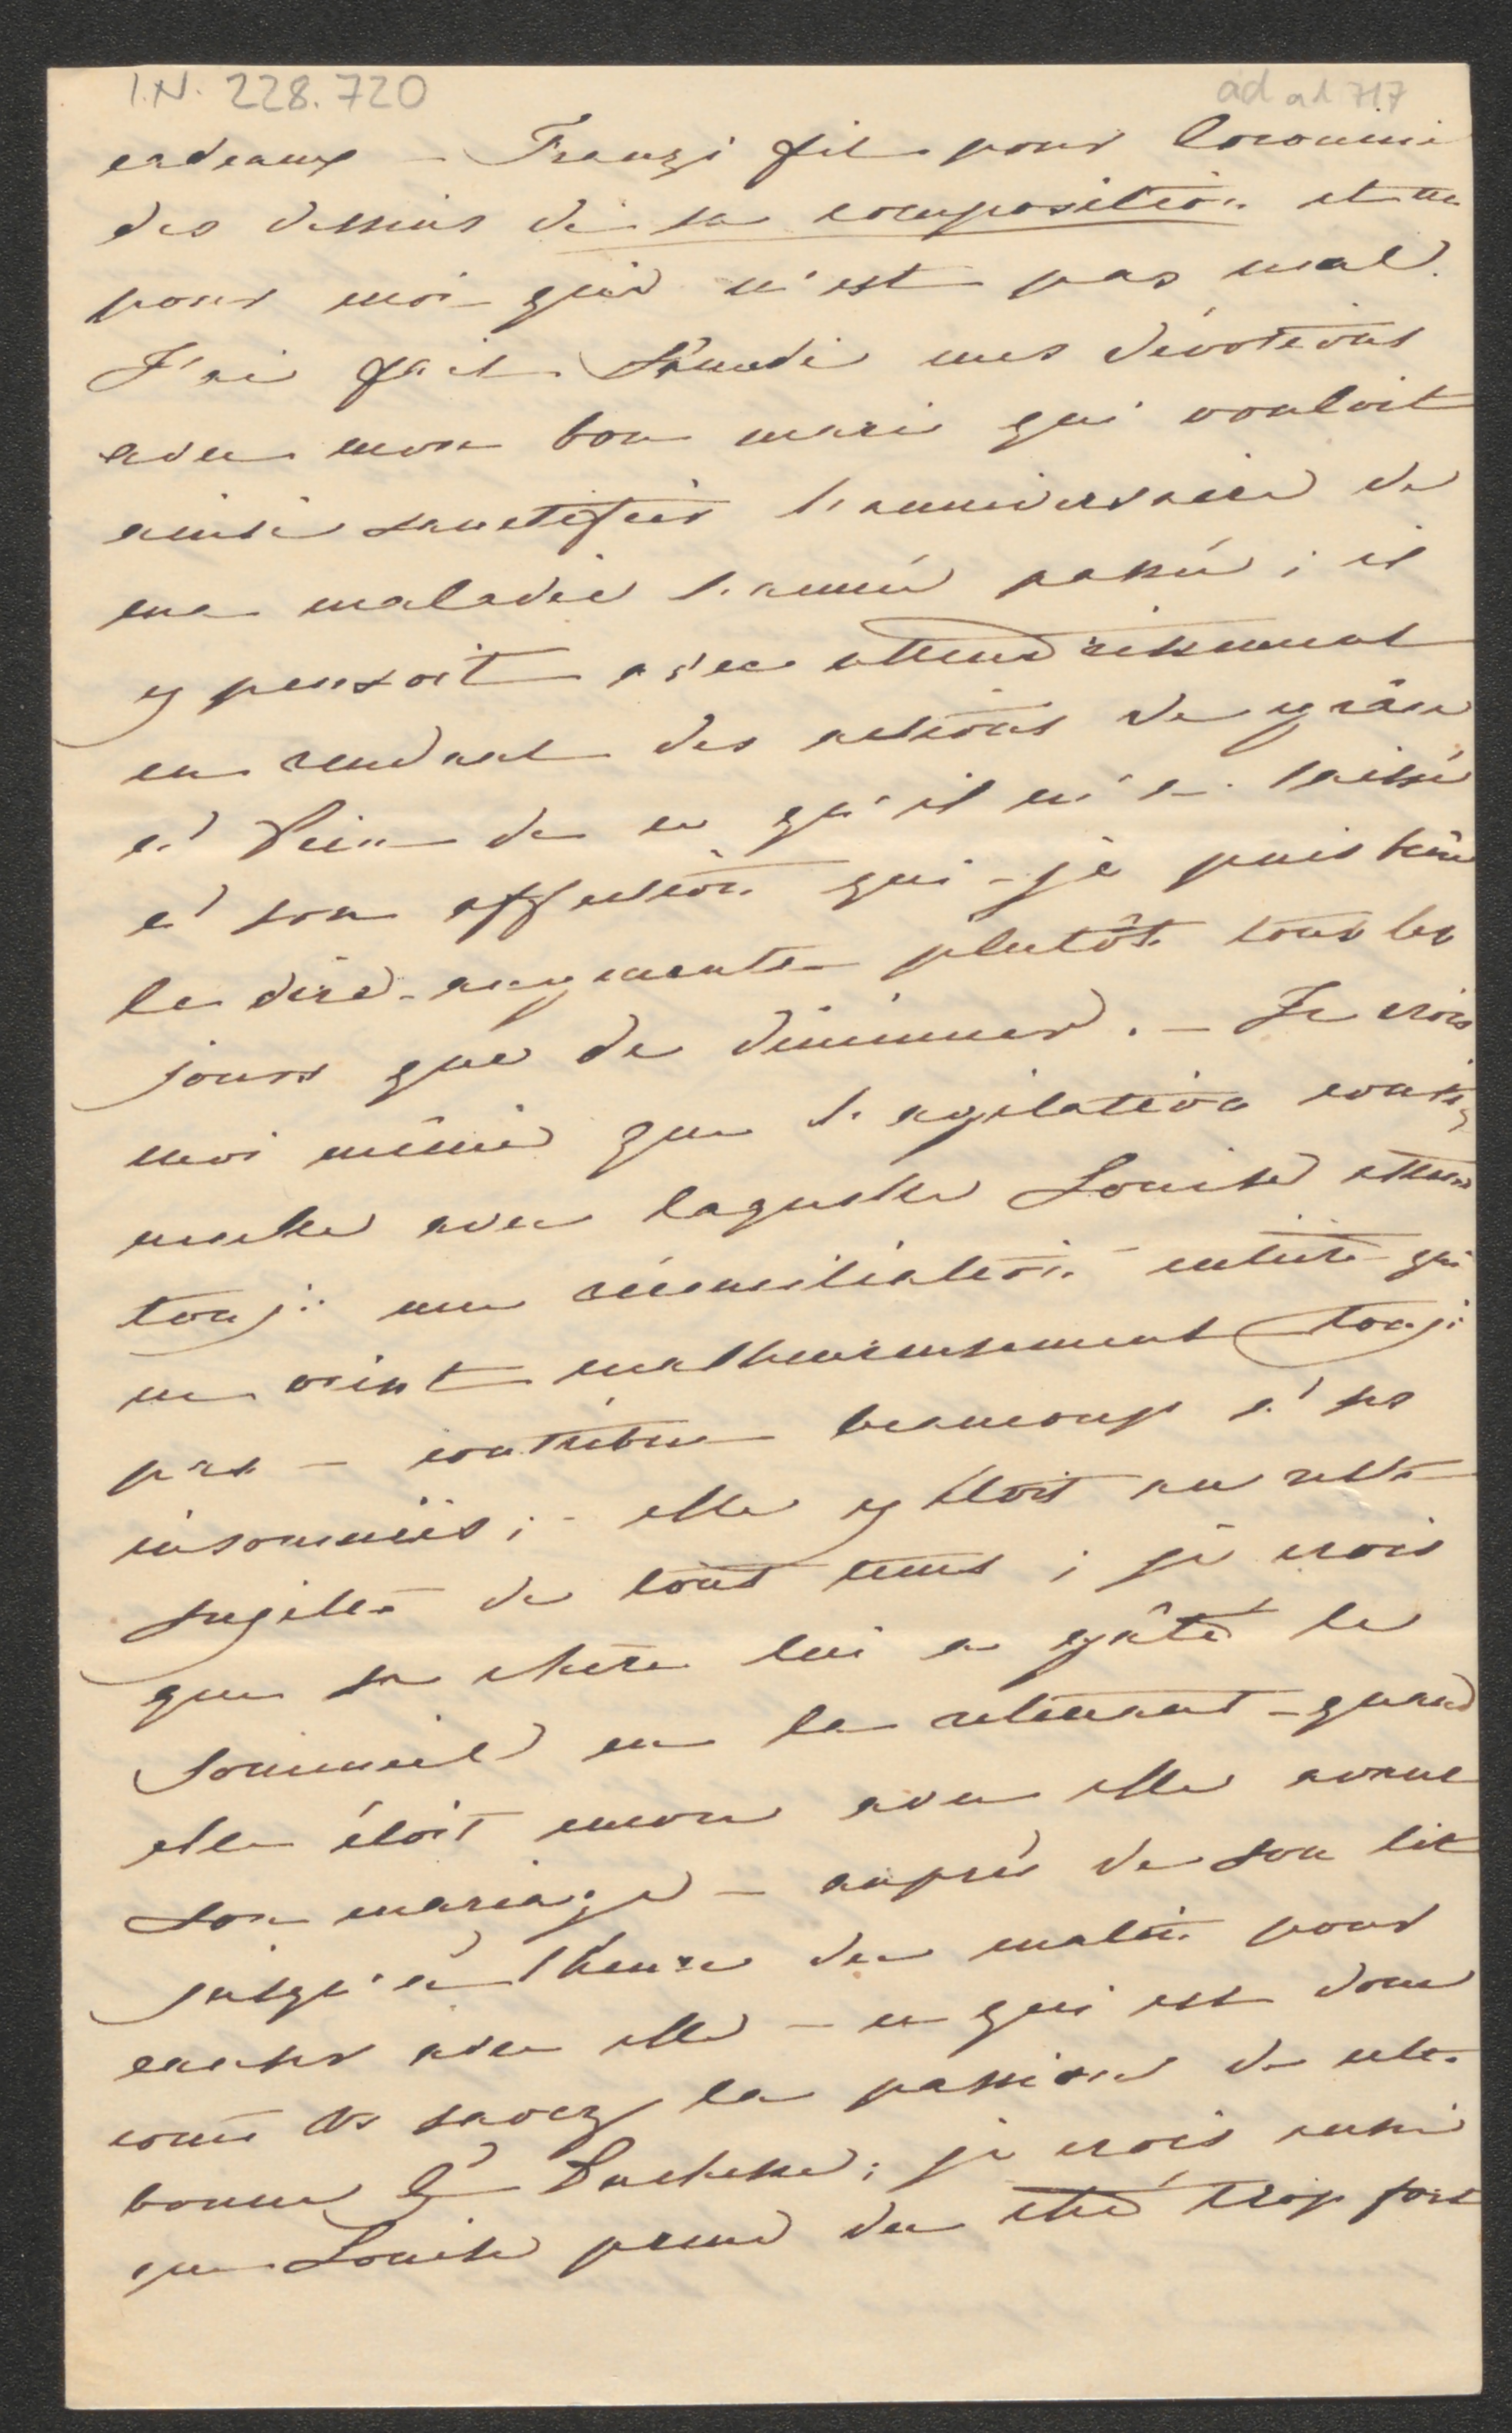 I.N. 228.720
ad a1 717
cadeaux – Franzi fit pour Coronini
des dessins de sa composition et un
pour moi qui n'est pas mal.
J'ai fait Samedi mes dévotions
avec mon bon mari qui vouloit
ainsi sanctifier l'anniversaire de
ma maladie l'année passée ; il
y pensoit avec attendrissement
en rendant des actions de grâce
à Dieu de ce qu'il m'a laissée
à son affection qui – je puis bien
le dire – augmente plutôt tous les
jours que de diminuer. – Je crois
moi même que l'agitation conti-
nuelle avec laquelle Louise attend
touj: une réconciliation entière qui
ne vient malheureusement touj:
pas – contribue beaucoup à ses
insomnies ; – elle y étoit au reste
sujette de tout tems ; je crois
que sa chère lui a gâté le
sommeil en la retenant – quand
elle étoit encore avec elle avant
son mariage – auprès de son lit
jusqu'à 1 heure du matin pour
causer avec elle – ce qui est donc
come vs savez la passion de cette
bonne Gde Duchesse ; je crois aussi
que Louise prend du thé trop fort